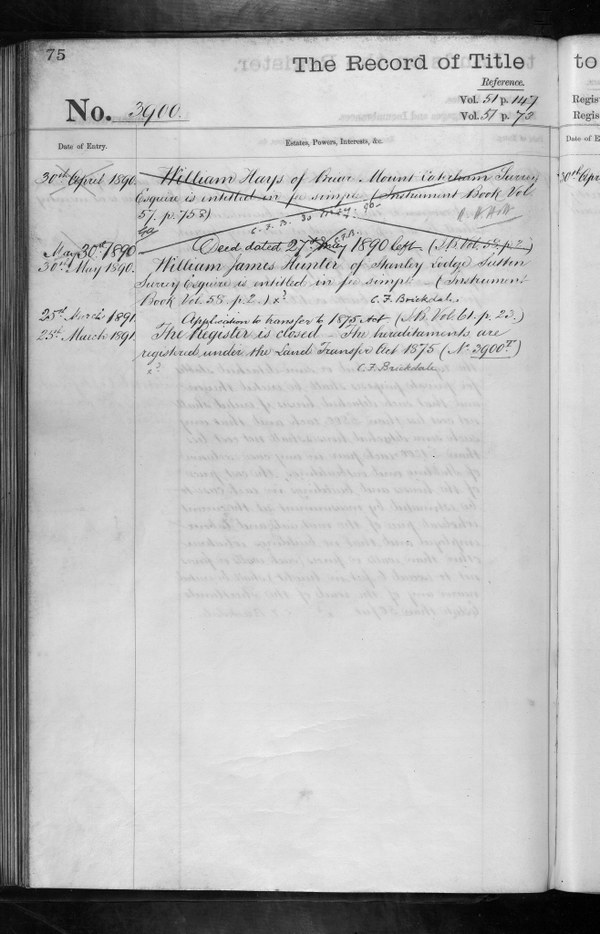 75
The Record of Title
Reference.
Vol. 51 p. 147
Vol. 57 p. 73
No. 3900.
Date of Entry.
Estates, Powers, Interests, &c.
30th April 1890. William Hays of Briar Mount Caterham Surrey
Esquire is intitled in fee simple (Instrument Book Vol
57. p. 758)
C. F. B. 30 May. 90.
May 30th 1890 Deed dated 27th May 1890 left (A. Vol. 58. p. 2)
C.F.B.
30th May 1890. William James Hunter of Stanley Lodge Sutton
Surrey Esquire is entitled in fee simple (Instrument
Book Vol. 58. p. 2.) x?
C. F. Brickdale.
25th March 1891. Application to transfer to 1875 Act (A. B. Vol. 61. p. 23.)
25th March 1891. The Register is closed. The hereditaments are
registered under the Land Transfer Act 1875 (No. 3900T.)
x?
C. F. Brickdale
to
Regis
Regis
Date of E
30th Apr